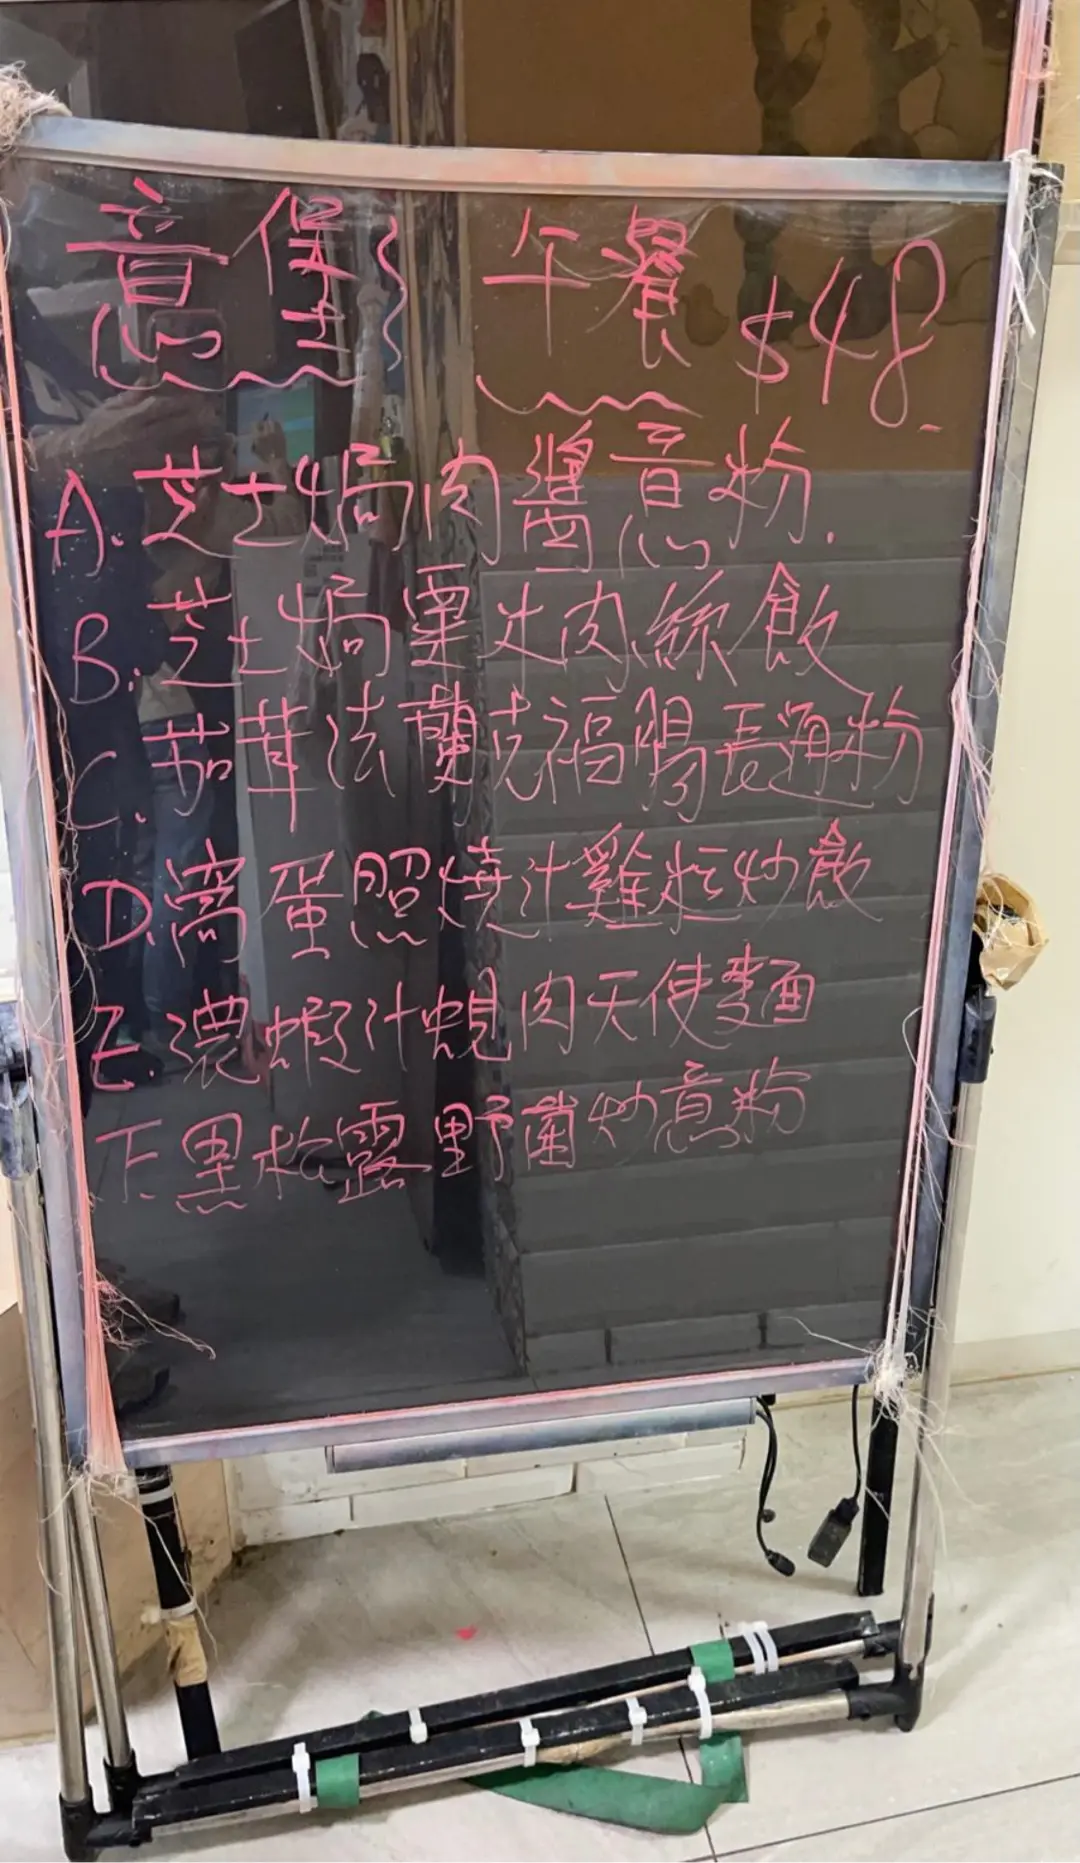 意堡 午餐 $48
A. 芝士焗肉醬意粉.
B. 芝士焗粟米肉絲飯
C. 茄茸法蘭克福腸長通粉
D. 窩蛋照燒汁雞粒炒飯
E. 濃蝦汁蜆肉天使麵
F. 黑松露野菌炒意粉